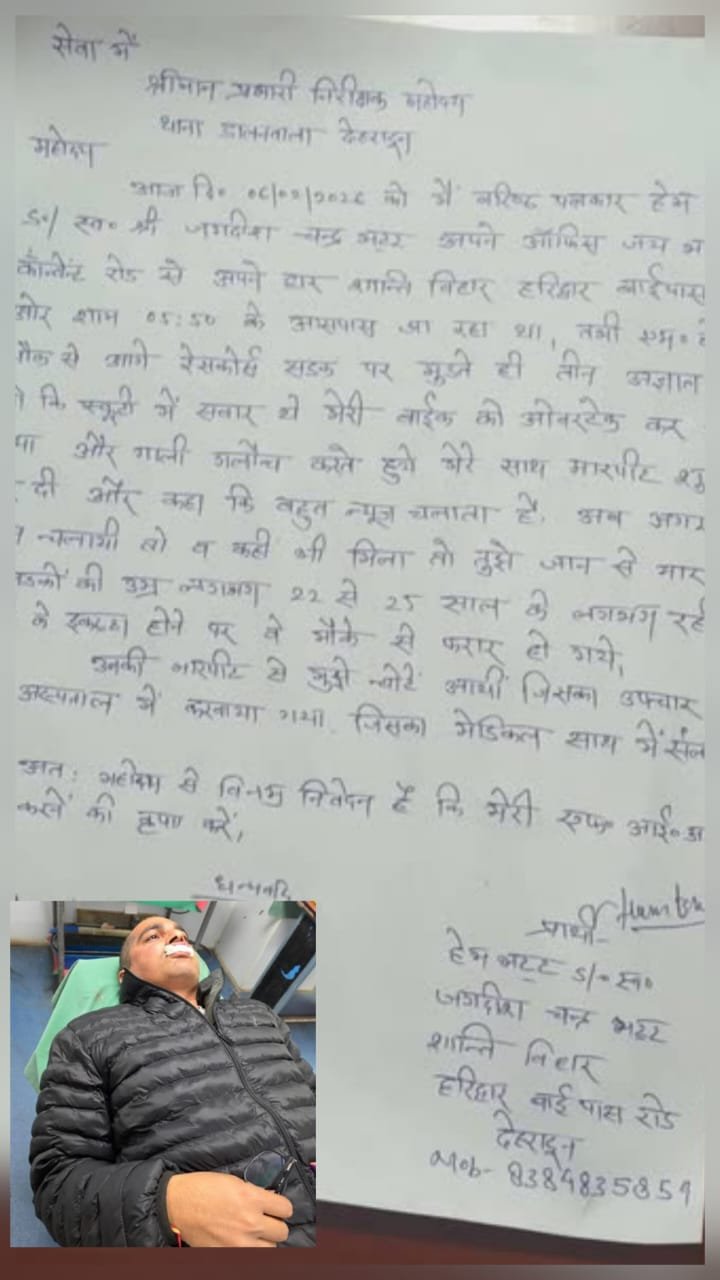 सेवा में
श्रीमान प्रभारी निरीक्षक महोदय
थाना डालनवाला देहरादून
महोदय
आज दि०
को मैं वरिष्ठ पत्रकार हेम
S०/ स्व० श्री जगदीश चन्द्र भट्ट अपने ऑफिस जय भ
कॉन्वेन्ट रोड से अपने घर शान्ति विहार हरिद्वार बाईपास
ओर शाम 05:50 के आसपास जा रहा था, तभी एम०
से आगे रेसकोर्स सडक पर मुडते ही तीन अज्ञात
कि स्कूटी में सवार थे मेरी बाईक को ओवरटेक कर
और गाली गलौच करते हुये मेरे साथ मारपीट शु
दी और कहा कि बहुत न्यूज चलाता है, अब अगर
चलायी तो व कहीं भी मिला तो तुझे जान से मार
की उम्र लगभग 22 से 25 साल के लगभग रही
के इकठ्ठा होने पर वे मौके से फरार हो गये,
उनकी मारपीट से मुझे चोटें आयीं जिसका उपचार
अस्पताल में करवाया गया, जिसका मेडिकल साथ में संल
अतः महोदय से विनम्र निवेदन है कि मेरी एफ० आई० आ
करने की कृपा करें,
धन्यवाद
प्रार्थी-
हेम भट्ट S/० स्व०
जगदीश चन्द्र भट्ट
शान्ति विहार
हरिद्वार बाई पास रोड
देहरादून
Mob-